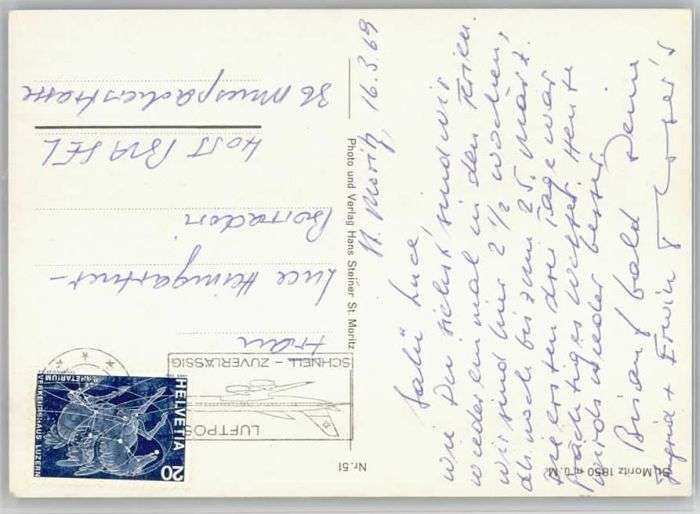 St. Moritz 1850 m ü. M.
St. Moritz, 16.3.69
Salü Luce,
wie Du siehst sind wir
wieder einmal in den Ferien.
Wir sind hier 2 1/2 Wochen,
also noch bis zum 25. März.
Die ersten drei Tage war
prächtiges Wetter. Heute
wirds wieder besser.
Bis auf bald Deine
Ingrid + Erwin
Nr. 51
Photo und Verlag Hans Steiner St. Moritz
LUFTPOST
SCHNELL – ZUVERLÄSSIG
HELVETIA
20
PLANETARIUM
VERKEHRSHAUS LUZERN
Frau
Luce Heimgartner-
4057 BASEL
36